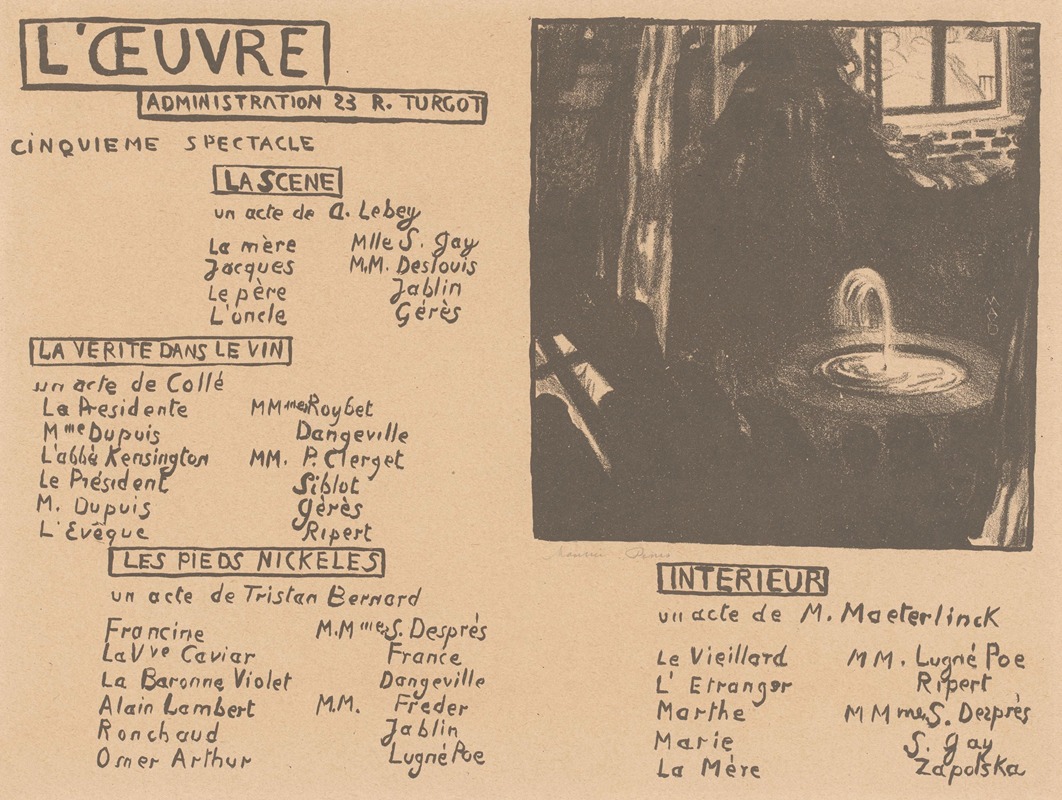 L'ŒUVRE
ADMINISTRATION 23 R. TURGOT
CINQUIEME SPECTACLE
LA SCENE
un acte de A. Lebey
La mère Mlle S. Gay
Jacques M.M. Deslouis
Le père Jablin
L'oncle Gérès
LA VERITE DANS LE VIN
un acte de Collé
La Presidente MMmes Roybet
Mme Dupuis Dangeville
L'abbè Kensington MM. P. Clerget
Le Président Siblot
M. Dupuis Gérès
L'Evêque Ripert
LES PIEDS NICKELES
un acte de Tristan Bernard
Francine M.Mmes S. Desprès
La Vve Caviar France
La Baronne Violet Dangeville
Alain Lambert M.M. Freder
Ronchaud Jablin
Omer Arthur Lugné Poe
MAUD
Maurice Denis
INTERIEUR
un acte de M. Maeterlinck
Le Vieillard MM. Lugné Poe
L'Etranger Ripert
Marthe MMmes S. Desprès
Marie S. Gay
La Mère Zapolska